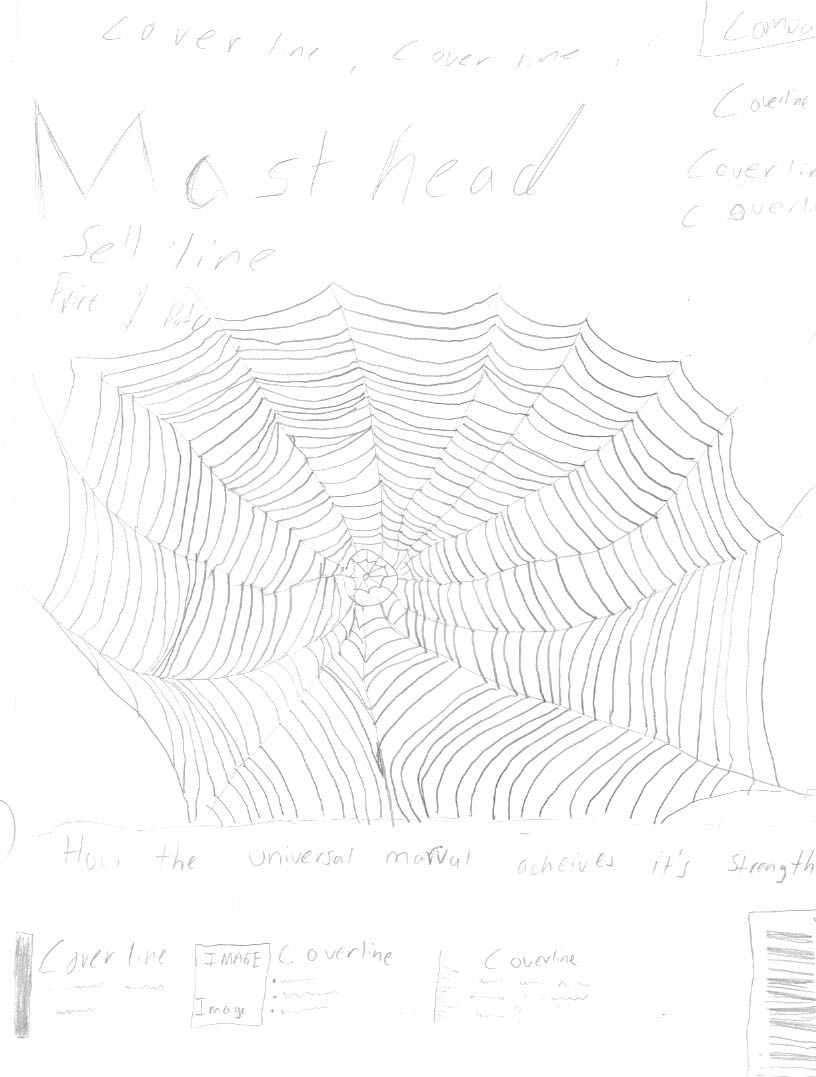 Cover line, Cover line,
Coverline
Mast head
Coverline
Coverline
Sell line
Price / Date
How the universal marval acheives it's strength
Cover line
IMAGE
Image
Coverline
Coverline